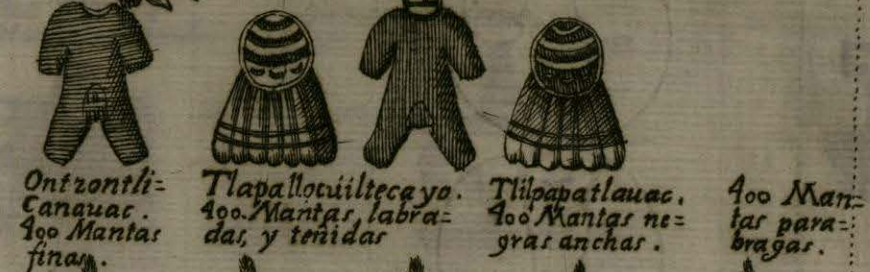 Ontzontli=
Canauac.
400 Mantas
finas.
Tlapallocuiltecayo.
400. Mantas, labra=
das, y teñidas
Tlilpapatlauac.
400 Mantas ne=
gras anchas.
400 Man=
tas para=
bragas.